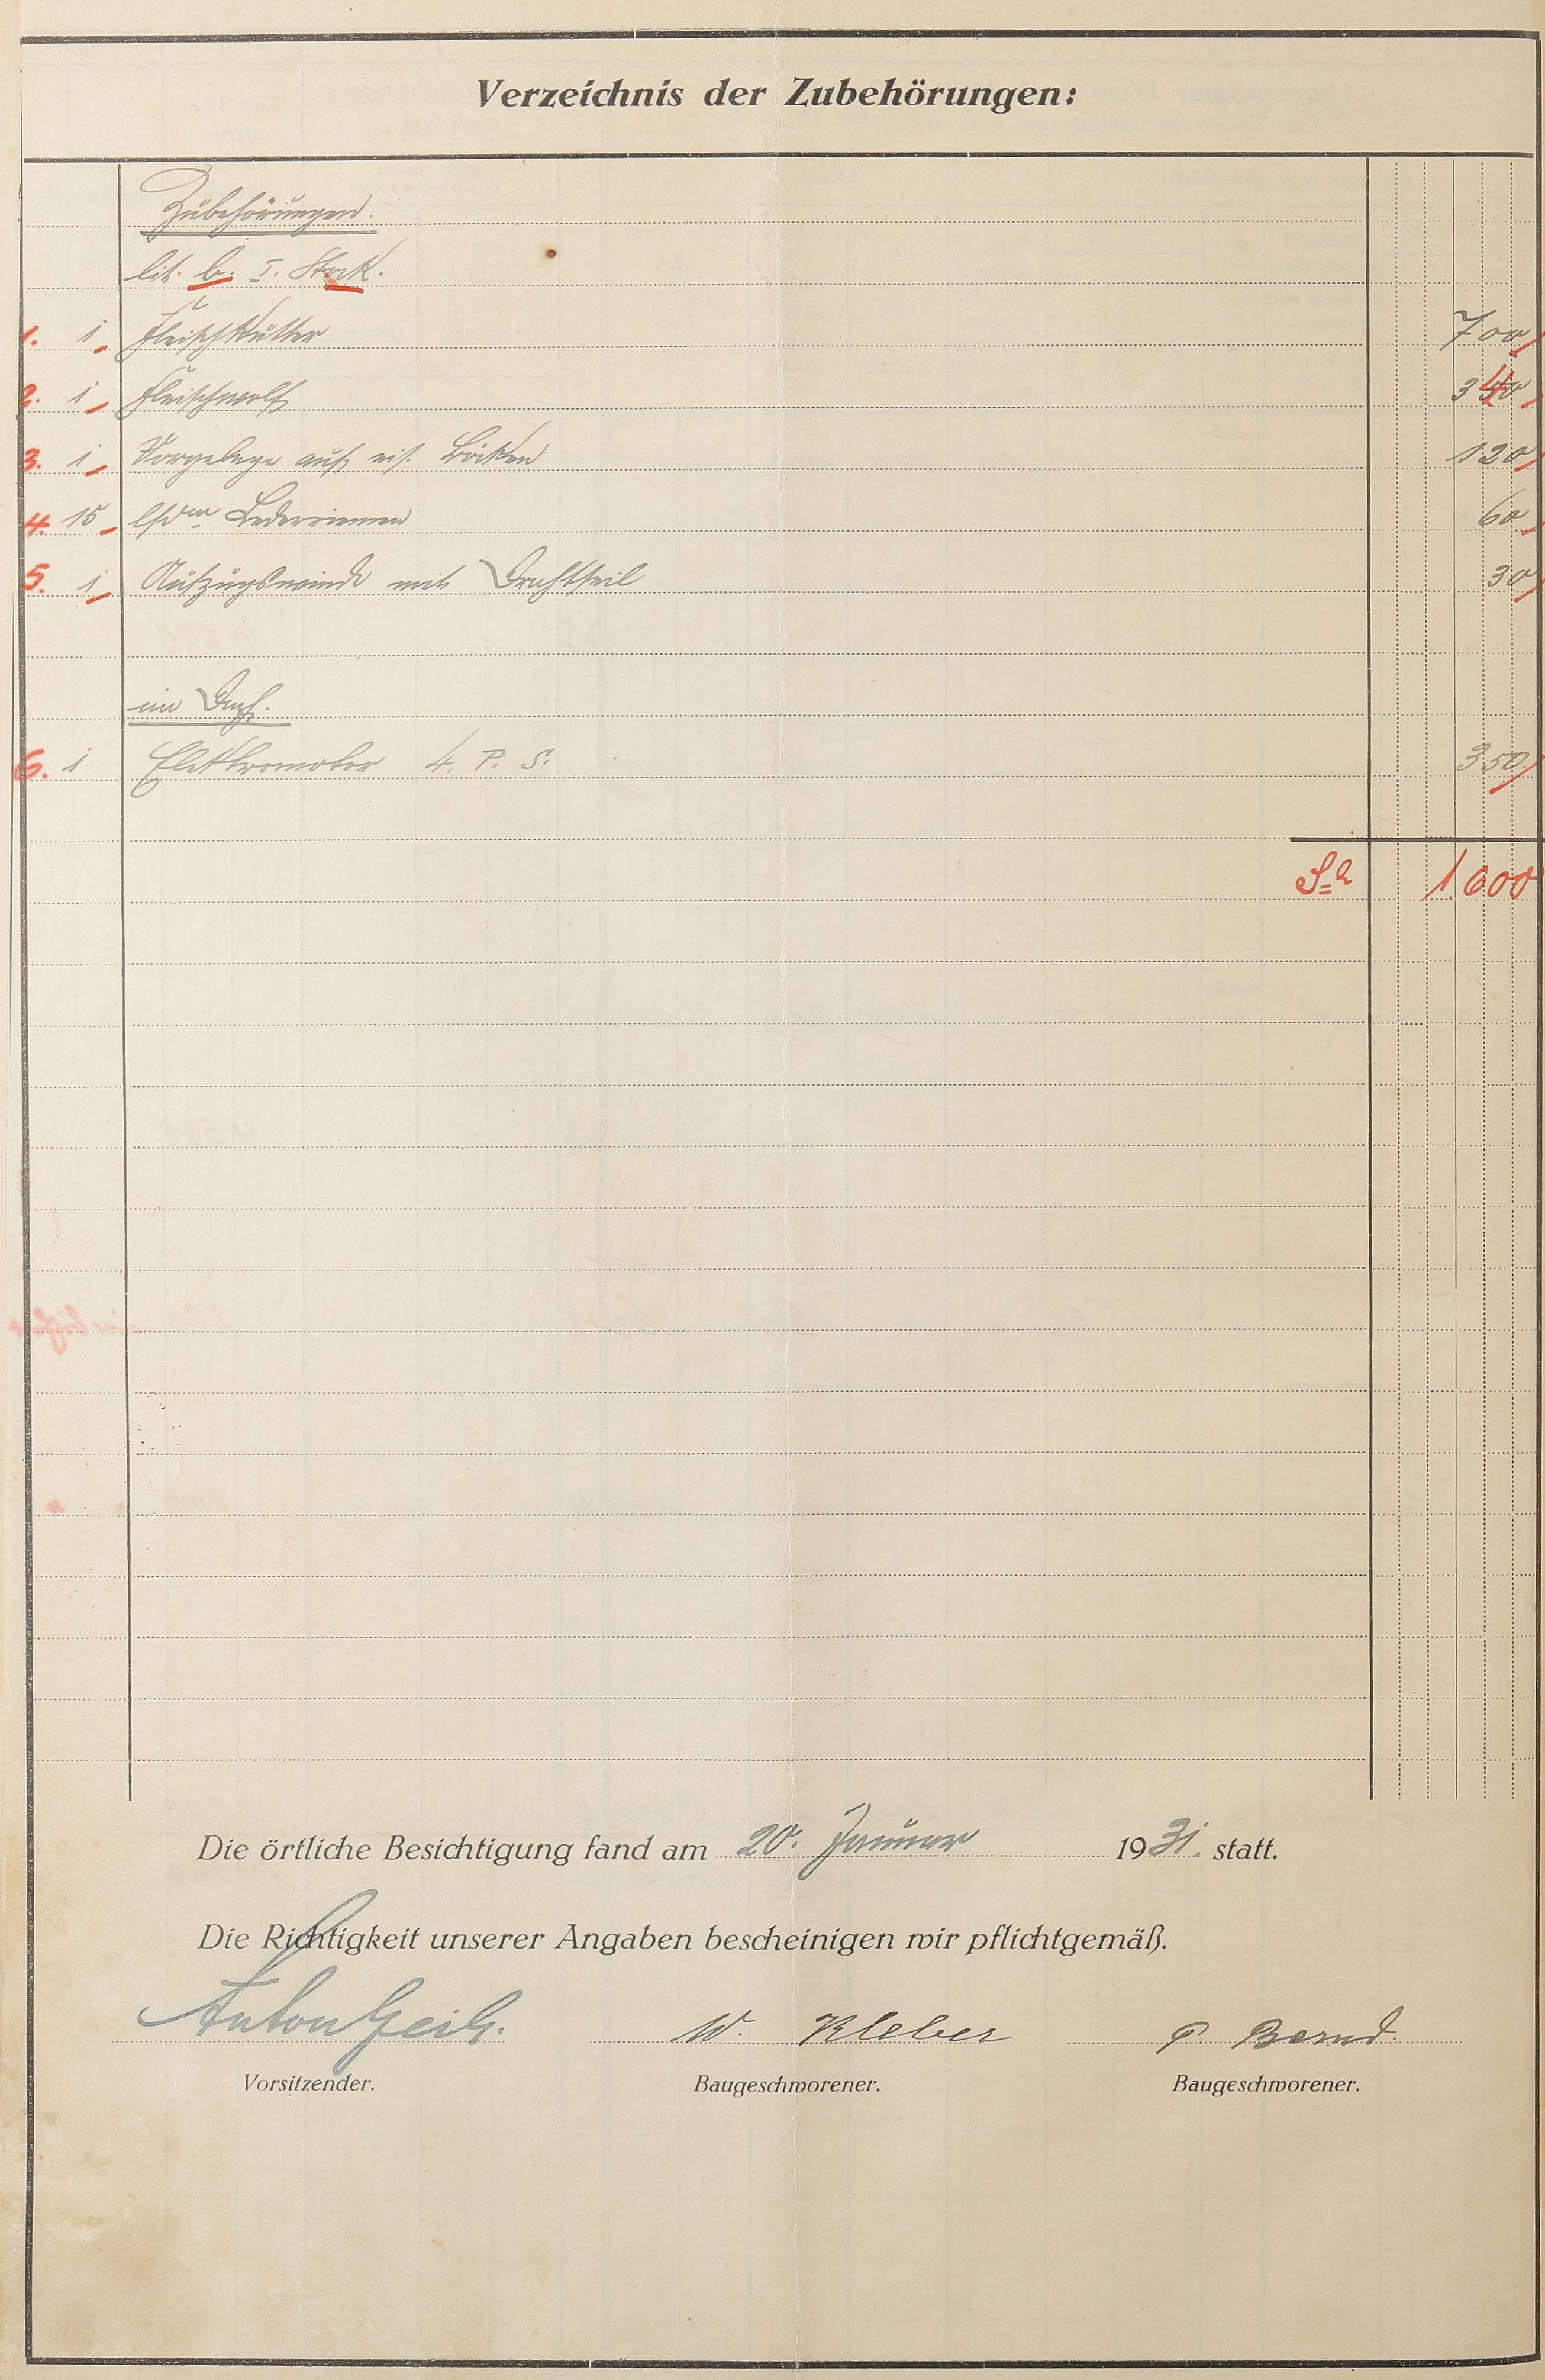 Verzeichnis der Zubehörungen:
Zubehörungen.
lit. b. I. Stock.
1. 1 Fleischkutter 700
2. 1 Fleischwolf 340
3. 1 Vorgelege auf eis. Böcken 120
4. 15 lfdm Lederriemen 60
5. 1 Aufzugswinde mit Drahtseil 30
im Dach.
6. 1 Elektromotor 4. P. S. 350
Sa 1600
Die örtliche Besichtigung fand am 20. Januar 1931. statt.
Die Richtigkeit unserer Angaben bescheinigen wir pflichtgemäß.
Anton W. Kleber P. Bernd.
Vorsitzender. Baugeschworener. Baugeschworener.